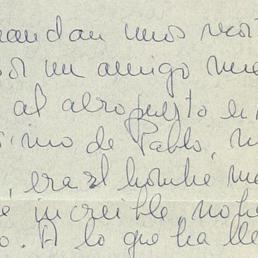 mandan unos
por un amigo
al aeropuerto en
de Pablo,
, era el hombre
increible,
o. A lo que ha lle